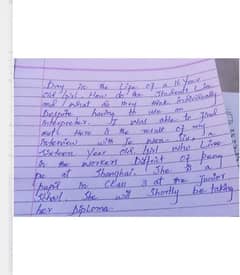 Day in the Life of a 16 Year
Old Girl. How do the Students Live
and what do they think individually
Despite having to use an
Interpreter. I was able to find
out. Here is the result of my
interview with
Sixteen Year Old Girl who Live
in the workers District of
at Shanghai. She is a
pupil in Class 3 at the Junior
School. She will Shortly be taking
her Diploma.